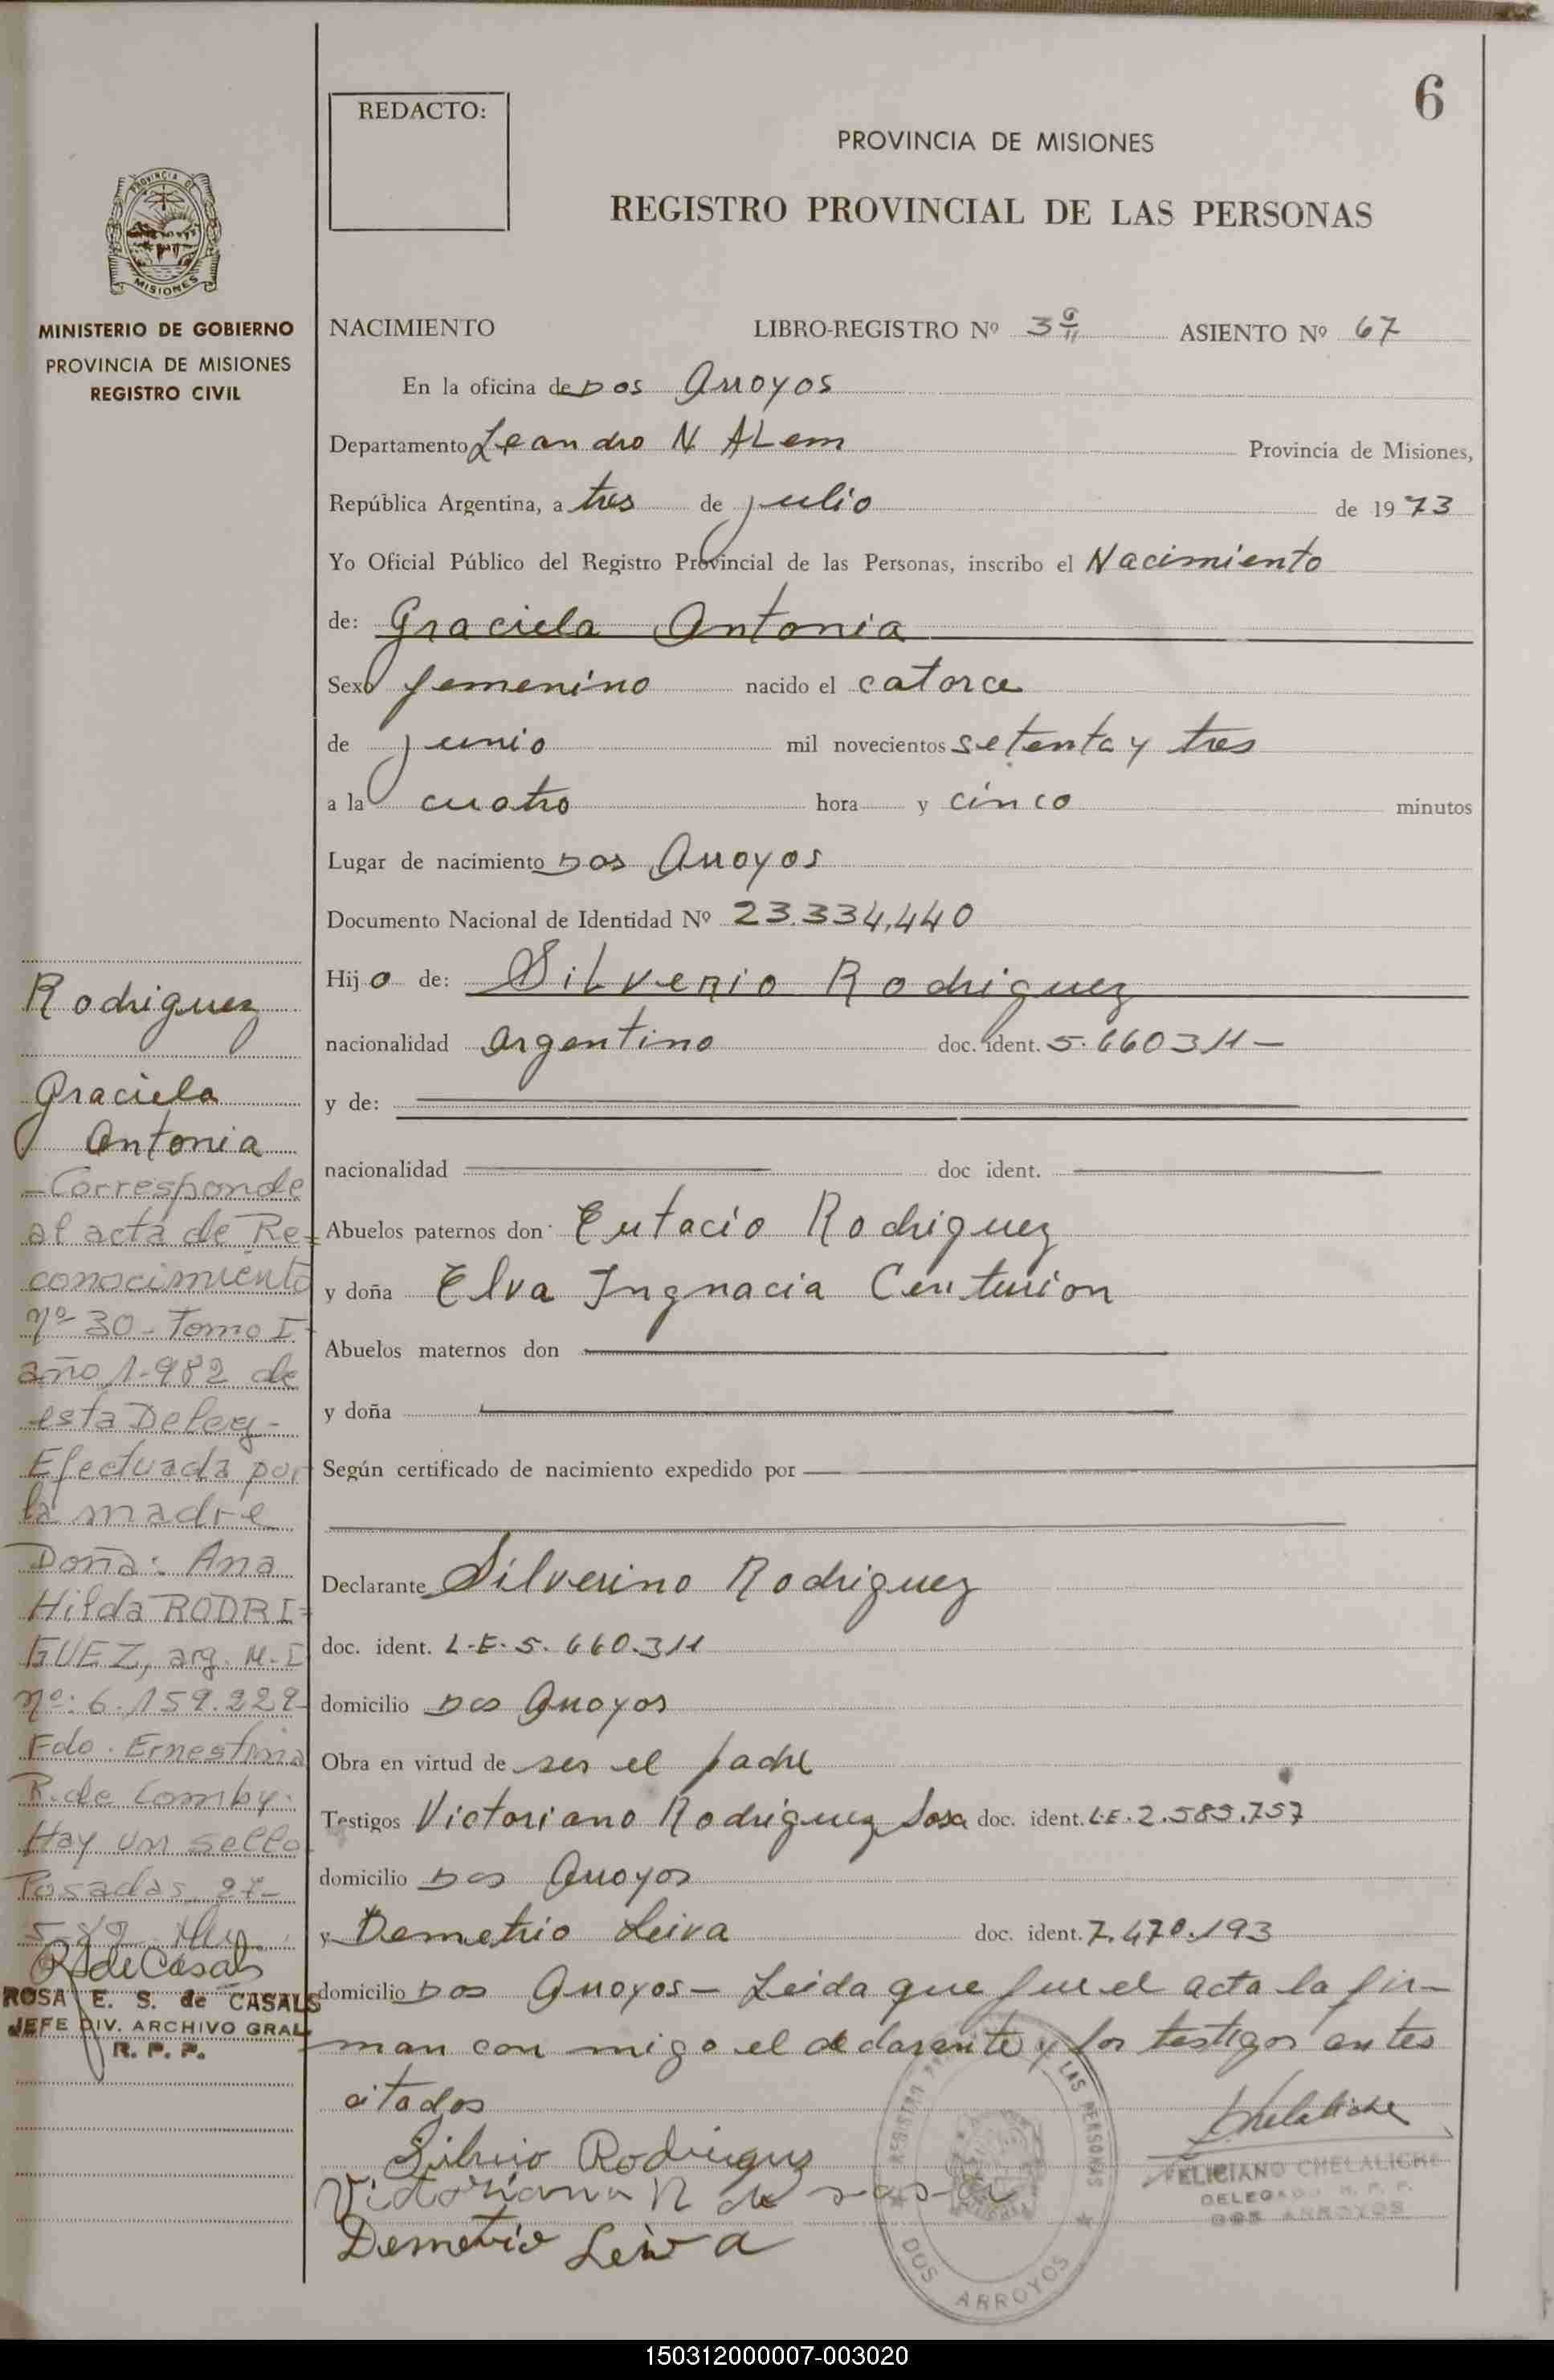 6
REDACTO:
PROVINCIA DE MISIONES
REGISTRO PROVINCIAL DE LAS PERSONAS
PROVINCIA DE
MISIONES
MINISTERIO DE GOBIERNO
PROVINCIA DE MISIONES
REGISTRO CIVIL
NACIMIENTO LIBRO-REGISTRO Nº 3º ASIENTO Nº 67
En la oficina de Dos Arroyos
Departamento Leandro N ALem Provincia de Misiones,
República Argentina, a tres de julio de 1973
Yo Oficial Público del Registro Provincial de las Personas, inscribo el Nacimiento
de: Graciela Antonia
Sexo femenino nacido el catorce
de junio mil novecientos setenta y tres
a la cuatro hora y cinco minutos
Lugar de nacimiento Dos Arroyos
Documento Nacional de Identidad Nº 23.334,440
Hijo de: Silverio Rodriguez
nacionalidad argentino doc. ident. 5.660311-
y de:
nacionalidad doc ident.
Abuelos paternos don Eutacio Rodriguez
y doña Elva Ingnacia Centurion
Abuelos maternos don
y doña
Según certificado de nacimiento expedido por
Declarante Silverino Rodriguez
doc. ident. L-E-5.660.311
domicilio Dos Arroyos
Obra en virtud de ser el padre
Testigos Victoriano Rodriguez Sosa doc. ident. L.E.2.585.757
domicilio Dos Arroyos
y Demetrio Leiva doc. ident. 7.470.193
domicilio Dos Arroyos- Leida que fue el acta la fir-
man con migo el declarante y los testigos antes
citados
Silverio Rodriguez
Victoriana R de sosa
Demetrio Leiva
Chelaliche
FELICIANO CHELALICHE
DELEGADO R. P. P.
DOS ARROYOS
REGISTRO LAS PERSONAS
DOS ARROYOS
Rodriguez
Graciela
Antonia
-Corresponde
al acta de Re=
conocimiento
Nº 30 - Tomo I
año 1.982 de
esta Deleg-
Efectuada por
la madre
Doña: Ana
Hilda RODRI=
GUEZ, arg. M.I
Nº: 6.159.229-
Fdo. Ernestina
R. de Comby.
Hay un sello
Posadas, 27-
R S de Casals
ROSA E. S. de CASALS
JEFE DIV. ARCHIVO GRAL
R. P. P.
150312000007-003020